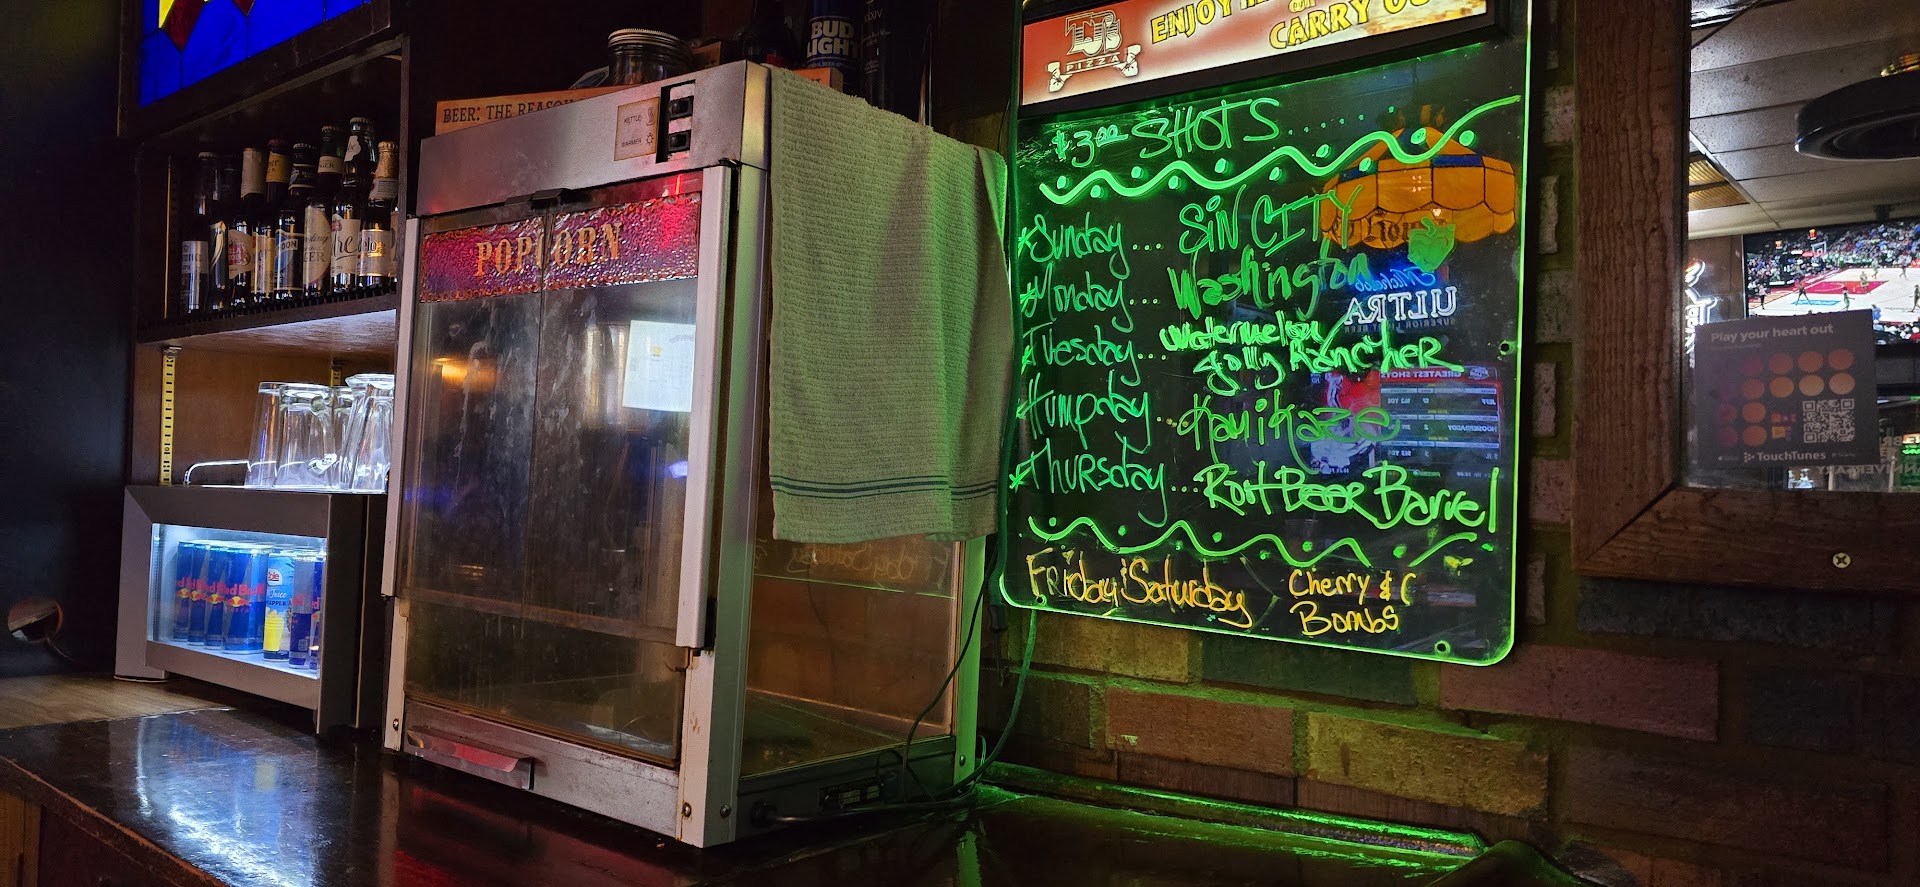 BUD
LIGHT
BEER: THE REASON
KETTLE
WARMER
POPCORN
Red Bull
Dole
TJ's
PIZZA
ENJOY
CARRY OUT
$3.00 SHOTS......
*Sunday.... SiN CITY
*Monday.... Washington
*Tuesday... Watermelon
Jolly RANCHER
*Humpday... Kamikaze
*Thursday... Root Beer Barrel
Friday & Saturday Cherry & C
Bombs
ULTRA
SUPERIOR LIGHT BEER
GREATEST SHOTS
Play your heart out
TouchTunes